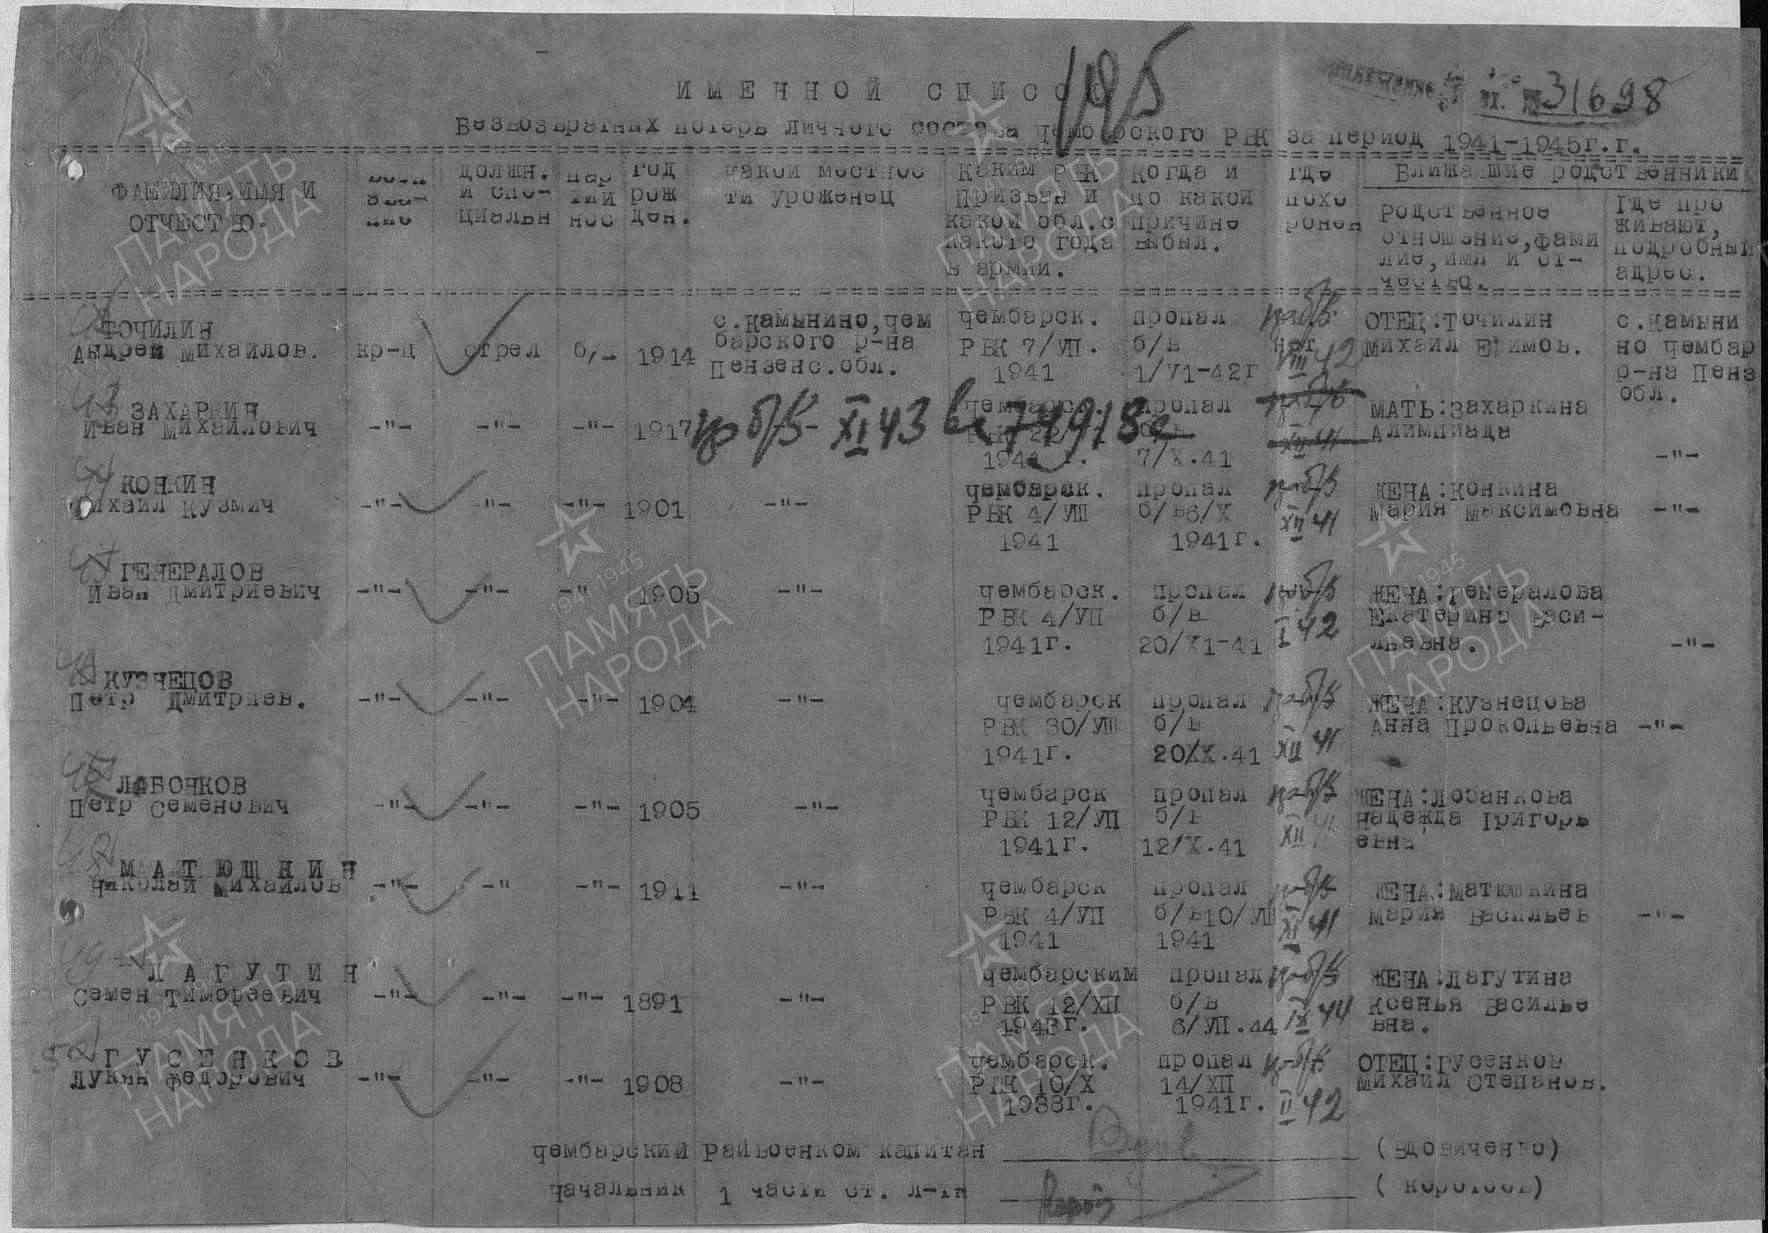 195
31698
ИМЕННОЙ СПИСОК
Безвозвратных потерь личного состава Чембарского РВК за период 1941-1945г.г.
ФАМИЛИЯ, ИМЯ И ОТЧЕСТВО.
должн. и спе- циальн
пар тий нос
год рож ден.
какой местнос ти уроженец
Каким РВК Призван и какой обл.с какого года в армии.
Когда и по какой причине выбыл.
где похо ронен
Ближайшие родственники
Родственное отношение, фами лие, имя и от- чество.
Где про живают, подробный адрес.
ТОЧИЛИН
Андрей Михайлов. кр-ц стрел б/ 1914 с.Камынино, чем барского р-на Пензенс.обл. чембарск. РВК 7/УП. 1941 пропал б/в 1/У1-42г ОТЕЦ:Точилин Михаил Ефимов. с.Камыни но чембар р-на Пенз обл.
VIII 42
43 ЗАХАРКИН
Иван Михайлович -"- -"- -"- 1917 чембарск РВК 1941 г. пропал 7/Х.41 МАТЬ:Захаркина Алимпиада -"-
пр б/в XI 43 вх 74918с
44 КОНКИН
Михаил Кузмич -"- -"- -"- 1901 -"- чембарск. РВК 4/УШ 1941 пропал б/в6/Х 1941г. пр б/в XII 41 ЖЕНА:Конкина Мария Максимовна -"-
ГЕНЕРАЛОВ
Иван Дмитриевич -"- -"- -" 1905 -"- чембарск. РВК 4/УП 1941г. пропал б/в 20/Х1-41 пр б/в I 42 ЖЕНА:Генералова Екатерина Васи- льевна. -"-
КУЗНЕЦОВ
Петр Дмитриев. -"- -"- -"- 1904 -"- чембарск РВК 30/УШ 1941г. пропал б/в 20/ІХ.41 пр б/в XII 41 ЖЕНА:Кузнецова Анна Прокопьевна -"-
ЛАБОНКОВ
Петр Семенович -"- -"- -"- 1905 -"- чембарск РВК 12/УП 1941г. пропал б/в 12/Х.41 пр б/в XII 41 ЖЕНА:Лобанкова Надежда Григорь евна
МАТЮШКИН
Николай Михайлов -"- -" -"- 1911 -"- чембарск РВК 4/УП 1941 пропал б/в10/УШ 1941 пр б/в XI 41 ЖЕНА:Матюшкина Мария Васильев -"-
49 ЛАГУТИН
Семен Тимофеевич -"- -"- -"- 1891 -"- чембарским РВК 12/ХП 1943г. пропал б/в 6/УП.44 пр б/в IX 44 ЖЕНА:Лагутина Ксенья Василье вна.
ГУСЕНКОВ
Лукян Федорович -"- -"- -"- 1908 -"- чембарск. РВК 10/Х 1938г. пропал 14/ХП 1941г. пр б/в II 42 ОТЕЦ:Гусенков Михаил Степанов.
Чембарский Райвоенком капитан (Вдовиченко)
Начальник 1 части ст. л-тн (Коротеев)
ПАМЯТЬ НАРОДА
1941-1945